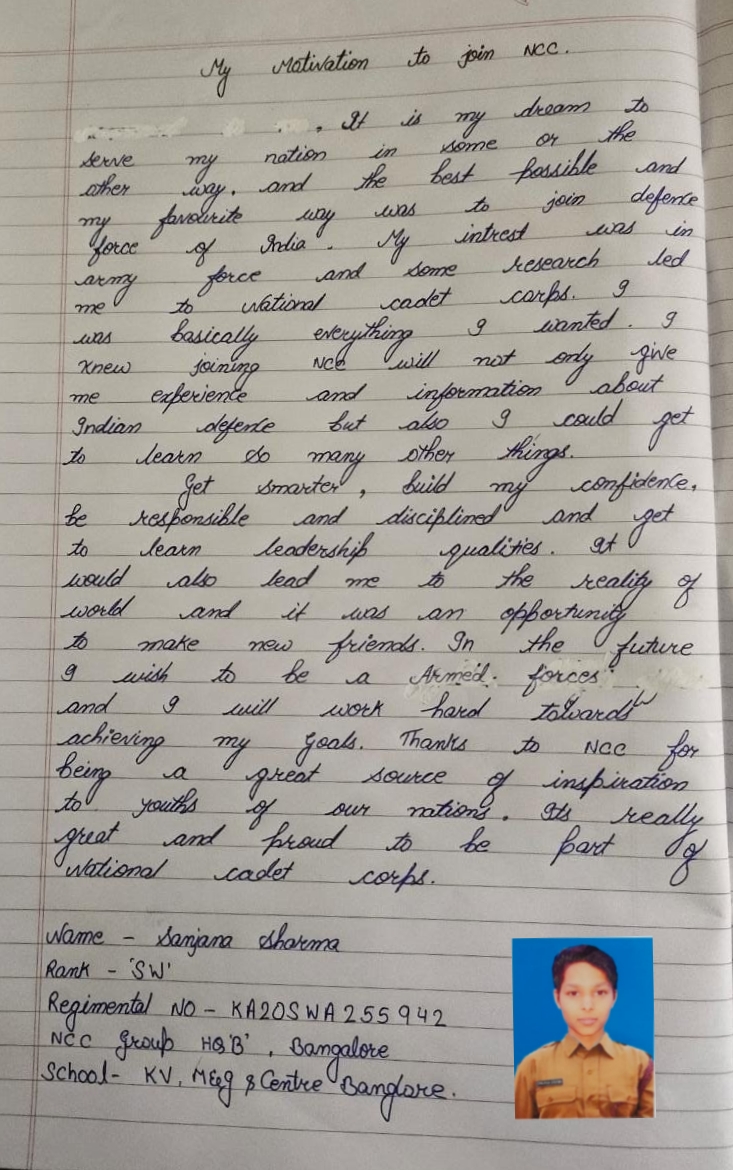 My Motivation to join NCC.
. It is my dream to
serve my nation in some or the
other way. and the best possible and
my favourite way was to join defence
force of India. My intrest was in
army force and some research led
me to National cadet corps. I
was basically everything I wanted. I
knew joining NCC will not only give
me experience and information about
Indian defence but also I could get
to learn so many other things.
Get smarter, build my confidence,
be responsible and disciplined and get
to learn leadership qualities. It
would also lead me to the reality of
world and it was an opportunity
to make new friends. In the future
I wish to be a Armed. forces
and I will work hard towards
achieving my goals. Thanks to NCC for
being a great source of inspiration
to youths of our nations. Its really
great and proud to be part of
National cadet corps.
Name - Sanjana Sharma
Rank - 'SW'
Regimental NO - KA20SWA255942
NCC Group HQ'B', Bangalore
School- KV, MEg & Centre Banglore.